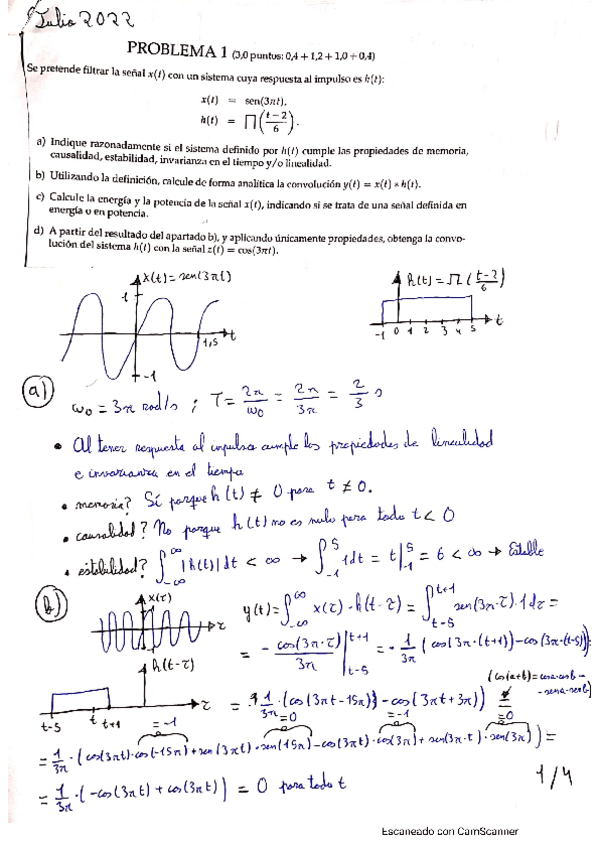 Julio 2022
PROBLEMA 1 (3,0 puntos: 0,4 + 1,2 + 1,0 + 0,4)
Se pretende filtrar la señal x(t) con un sistema cuya respuesta al impulso es h(t):
x(t) = sen(3πt),
h(t) = ∏((t−2)/6).
a) Indique razonadamente si el sistema definido por h(t) cumple las propiedades de memoria,
causalidad, estabilidad, invarianza en el tiempo y/o linealidad.
b) Utilizando la definición, calcule de forma analítica la convolución y(t) = x(t) * h(t).
c) Calcule la energía y la potencia de la señal x(t), indicando si se trata de una señal definida en
energía o en potencia.
d) A partir del resultado del apartado b), y aplicando únicamente propiedades, obtenga la convo-
lución del sistema h(t) con la señal z(t) = cos(3πt).
x(t) = sen(3πt)
1
1,5
t
-1
h(t) = Π((t-2)/6)
-1 0 1 2 3 4 5 t
a)
ω₀ = 3π rad/s ; T = 2π/ω₀ = 2π/3π = 2/3 s
• Al tener respuesta al impulso cumple las propiedades de linealidad
e invarianza en el tiempo
• memoria? Sí porque h(t) ≠ 0 para t ≠ 0.
• causalidad? No porque h(t) no es nulo para todo t < 0
• estabilidad? ∫_{-∞}^{∞} |h(t)| dt < ∞ → ∫_{-1}^{5} 1dt = t|_{-1}^{5} = 6 < ∞ → Estable
b)
x(τ)
τ
y(t) = ∫_{-∞}^{∞} x(τ)·h(t-τ) = ∫_{t-5}^{t+1} sen(3π·τ)·1dτ =
= - cos(3π·τ)/3π |_{t-5}^{t+1} = - 1/3π (cos(3π·(t+1)) - cos(3π·(t-5))) =
h(t-τ)
t-5 t t+1 τ
(cos(a+b) = cosa·cosb -
- sena·senb)
= 1/3π · (cos(3πt-15π) - cos(3πt+3π)) =
= -1 = 0 = -1 = 0
= 1/3π · (cos(3πt)·cos(-15π) + sen(3πt)·sen(15π) - cos(3πt)·cos(3π) + sen(3π·t)·sen(3π)) =
= 1/3π · (-cos(3πt) + cos(3πt)) = 0 para todo t
1/4
Escaneado con CamScanner